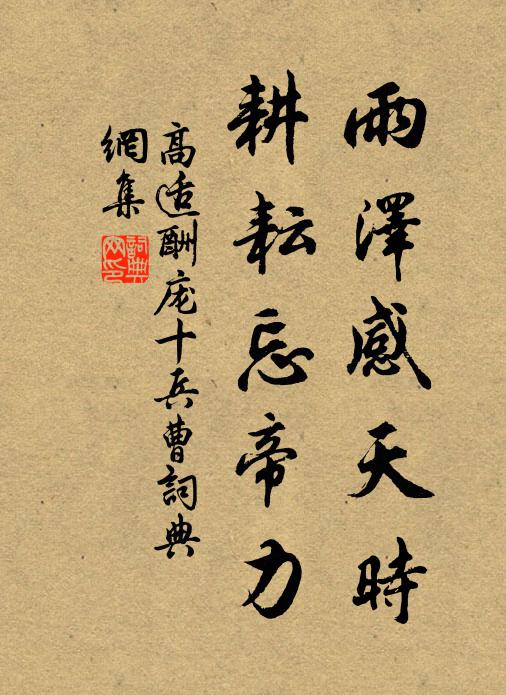 雨澤感天時
耕耘忘帝力
高适酬庞十兵曹詞典
網集
詞典网印